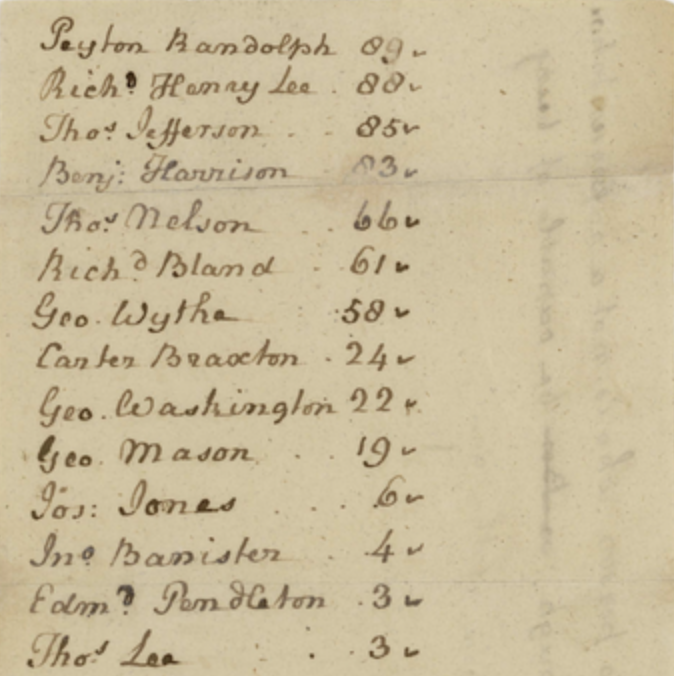 Peyton Randolph 89
Richd Henry Lee . 88
Thos Jefferson . . 85
Benj: Harrison 83
Thos Nelson . . 66
Richd Bland . 61
Geo. Wythe . 58
Carter Braxton . 24
Geo. Washington 22
Geo. Mason . . 19
Jos: Jones . . . 6
Jno Banister . . 4
Edmd Pendleton . 3
Thos Lee . . . 3